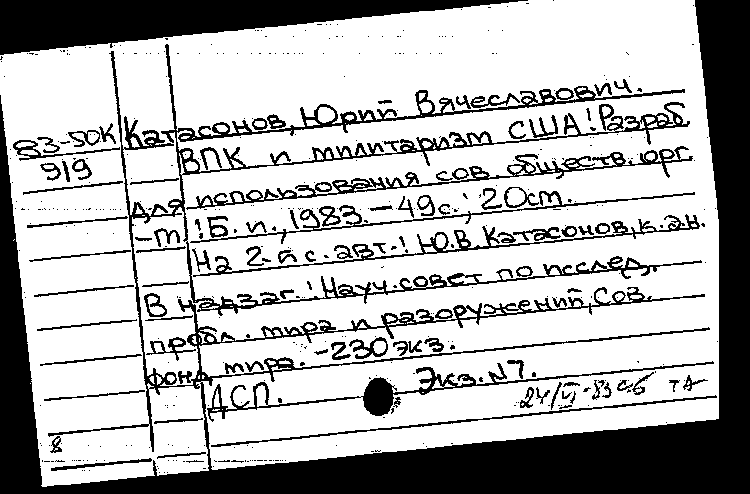 83-50К Катасонов, Юрий Вячеславович.
919 ВПК и милитаризм США: Разраб.
для использования сов. обществ. орг.
-М.: Б. и., 1983. - 49 с.; 20 см.
На 2-й с. авт.: Ю.В. Катасонов, к.э.н.
В надзаг.: Науч. совет по исслед.
пробл. мира и разоружений, Сов.
фонд мира. - 230 экз.
ДСП. Экз. №7.
24/VI-83 сб ТА
8